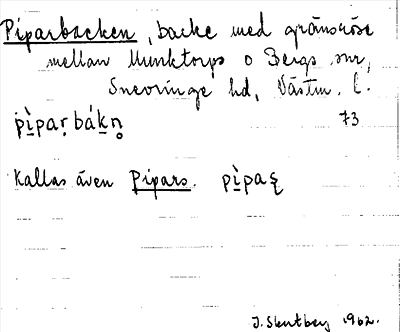 Piparbacken, backe med gränsröse
mellan Munktorps o Bergs snr,
Snevringe hd, Västm. l.
pìpaṛ bákn̥ 73
Kallas även Pipars. pìpaʂ
J. Stentberg 1962.